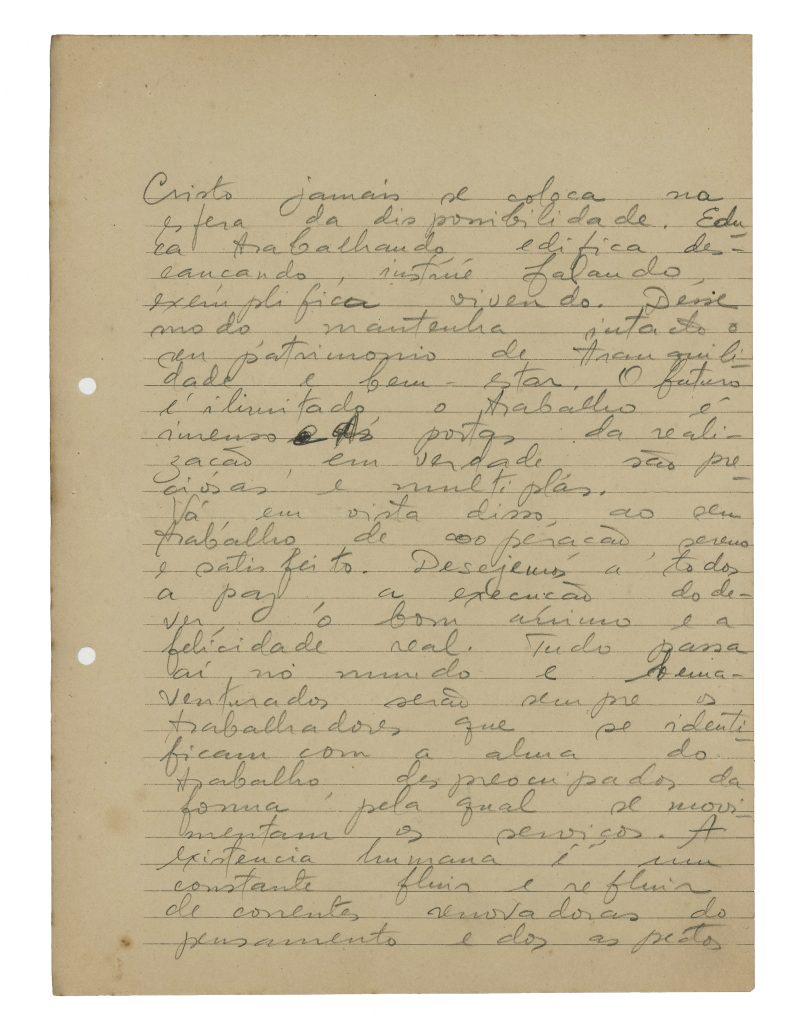 Cristo jamais se coloca na
esfera da disponibilidade. Edu
ca trabalhando, edifica des-
cançando, instrúe falando,
exemplifica vivendo. Désse
modo mantenha intacto o
seu patrimonio de tranquili-
dade e bem-estar. O futuro
é ilimitado, o trabalho é
imenso e As portas da reali-
zação, em verdade são pre-
ciósas e multiplas.
Vá em vista disso, ao seu
trabalho de cooperação, sereno
e satisfeito. Desejemos a todos
a paz, a execução do de-
ver, o bom animo e a
felicidade real. Tudo passa
aí, no mundo e bema-
venturados serão sempre os
trabalhadores que se identi-
ficam com a alma do
trabalho, despreocupados da
forma pela qual se movi-
mentam os serviços. A
existencia humana é um
constante fluir e refluir
de correntes renovadoras do
pensamento e dos aspectos